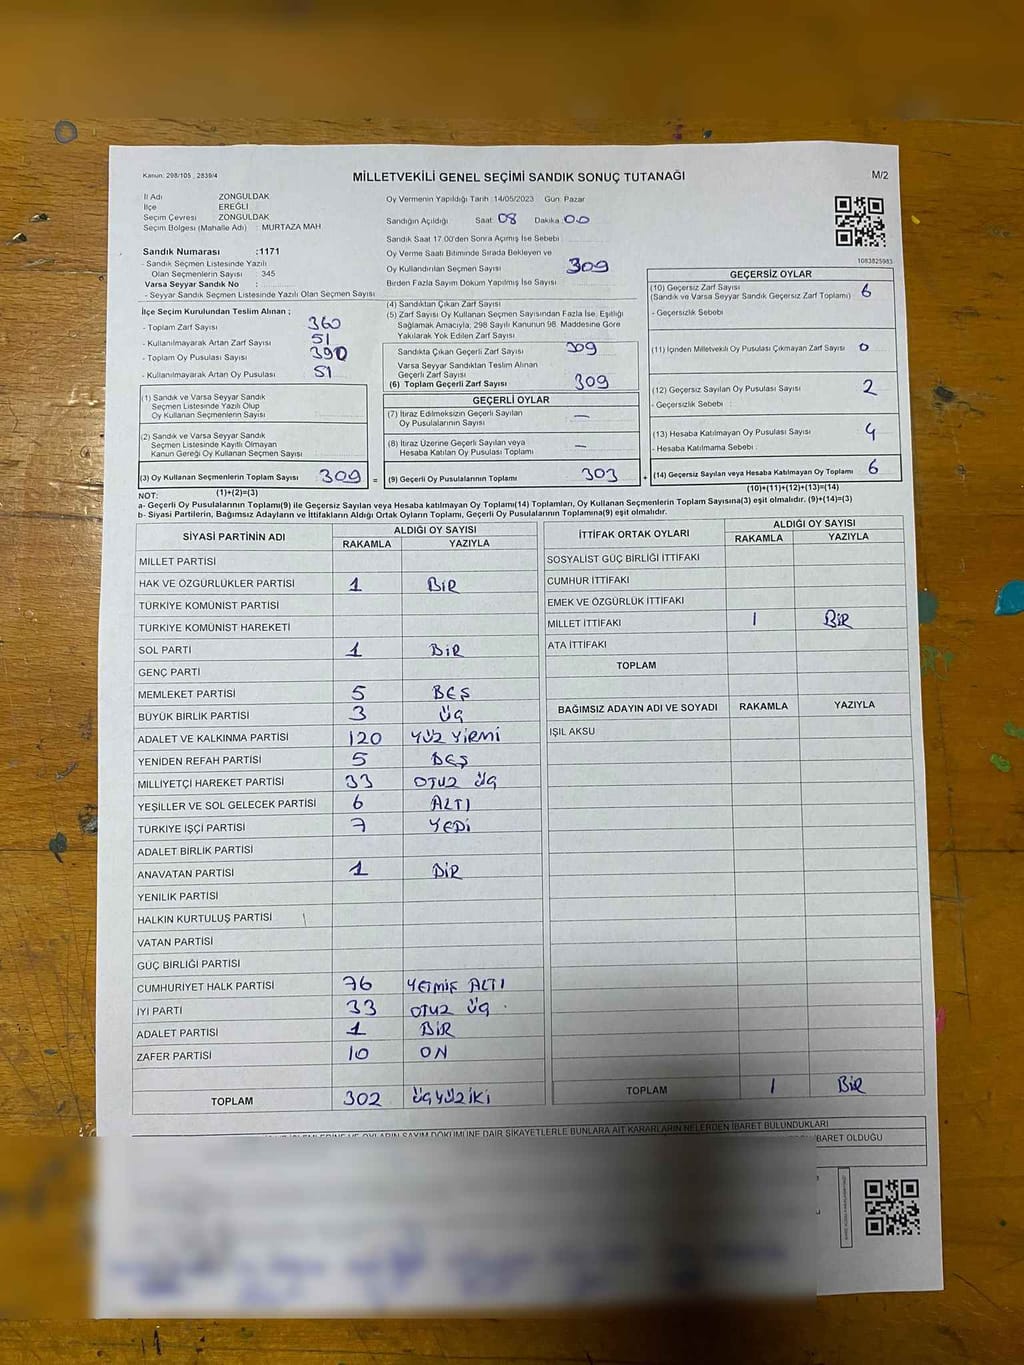 Kanun: 298/105 , 2839/4
MİLLETVEKİLİ GENEL SEÇİMİ SANDIK SONUÇ TUTANAĞI
M/2
İl Adı ZONGULDAK
İlçe EREĞLİ
Seçim Çevresi ZONGULDAK
Seçim Bölgesi (Mahalle Adı) : MURTAZA MAH
Sandık Numarası :1171
- Sandık Seçmen Listesinde Yazılı
Olan Seçmenlerin Sayısı : 345
Varsa Seyyar Sandık No :
- Seyyar Sandık Seçmen Listesinde Yazılı Olan Seçmen Sayısı
İlçe Seçim Kurulundan Teslim Alınan ;
- Toplam Zarf Sayısı 360
- Kullanılmayarak Artan Zarf Sayısı 51
- Toplam Oy Pusulası Sayısı
- Kullanılmayarak Artan Oy Pusulası 51
(1) Sandık ve Varsa Seyyar Sandık
Seçmen Listesinde Yazılı Olup
Oy Kullanan Seçmenlerin Sayısı
(2) Sandık ve Varsa Seyyar Sandık
Seçmen Listesinde Kayıtlı Olmayan
Kanun Gereği Oy Kullanan Seçmen Sayısı
(3) Oy Kullanan Seçmenlerin Toplam Sayısı 309 =
(1)+(2)=(3)
Oy Vermenin Yapıldığı Tarih :14/05/2023 Gün: Pazar
Sandığın Açıldığı Saat 08 Dakika 00
Sandık Saat 17.00'den Sonra Açılmış İse Sebebi
Oy Verme Saati Bitiminde Sırada Bekleyen ve
Oy Kullandırılan Seçmen Sayısı 309
Birden Fazla Sayım Döküm Yapılmış İse Sayısı
(4) Sandıktan Çıkan Zarf Sayısı
(5) Zarf Sayısı Oy Kullanan Seçmen Sayısından Fazla İse, Eşitliği
Sağlamak Amacıyla, 298 Sayılı Kanunun 98. Maddesine Göre
Yakılarak Yok Edilen Zarf Sayısı
Sandıkta Çıkan Geçerli Zarf Sayısı 309
Varsa Seyyar Sandıktan Teslim Alınan
Geçerli Zarf Sayısı
(6) Toplam Geçerli Zarf Sayısı 309
GEÇERLİ OYLAR
(7) İtiraz Edilmeksizin Geçerli Sayılan
Oy Pusulalarının Sayısı —
(8) İtiraz Üzerine Geçerli Sayılan veya
Hesaba Katılan Oy Pusulası Toplamı —
(9) Geçerli Oy Pusulalarının Toplamı 303 +
1083825983
GEÇERSİZ OYLAR
(10) Geçersiz Zarf Sayısı 6
(Sandık ve Varsa Seyyar Sandık Geçersiz Zarf Toplamı)
- Geçersizlik Sebebi
(11) İçinden Milletvekili Oy Pusulası Çıkmayan Zarf Sayısı 0
(12) Geçersiz Sayılan Oy Pusulası Sayısı 2
- Geçersizlik Sebebi :
(13) Hesaba Katılmayan Oy Pusulası Sayısı 4
- Hesaba Katılmama Sebebi :
(14) Geçersiz Sayılan veya Hesaba Katılmayan Oy Toplamı 6
(10)+(11)+(12)+(13)=(14)
NOT:
a- Geçerli Oy Pusulalarının Toplamı(9) ile Geçersiz Sayılan veya Hesaba katılmayan Oy Toplamı(14) Toplamları, Oy Kullanan Seçmenlerin Toplam Sayısına(3) eşit olmalıdır. (9)+(14)=(3)
b- Siyasi Partilerin, Bağımsız Adayların ve İttifakların Aldığı Ortak Oyların Toplamı, Geçerli Oy Pusulalarının Toplamına(9) eşit olmalıdır.
SİYASİ PARTİNİN ADI ALDIĞI OY SAYISI
RAKAMLA YAZIYLA
MİLLET PARTİSİ
HAK VE ÖZGÜRLÜKLER PARTİSİ 1 BİR
TÜRKİYE KOMÜNİST PARTİSİ
TÜRKİYE KOMÜNİST HAREKETİ
SOL PARTİ 1 BİR
GENÇ PARTİ
MEMLEKET PARTİSİ 5 BEŞ
BÜYÜK BİRLİK PARTİSİ 3 ÜÇ
ADALET VE KALKINMA PARTİSİ 120 YÜZ YİRMİ
YENİDEN REFAH PARTİSİ 5 BEŞ
MİLLİYETÇİ HAREKET PARTİSİ 33 OTUZ ÜÇ
YEŞİLLER VE SOL GELECEK PARTİSİ 6 ALTI
TÜRKİYE İŞÇİ PARTİSİ 7 YEDİ
ADALET BİRLİK PARTİSİ
ANAVATAN PARTİSİ 1 BİR
YENİLİK PARTİSİ
HALKIN KURTULUŞ PARTİSİ
VATAN PARTİSİ
GÜÇ BİRLİĞİ PARTİSİ
CUMHURİYET HALK PARTİSİ 76 YETMİŞ ALTI
İYİ PARTİ 33 OTUZ ÜÇ
ADALET PARTİSİ 1 BİR
ZAFER PARTİSİ 10 ON
TOPLAM 302 ÜÇYÜZİKİ
İTTİFAK ORTAK OYLARI ALDIĞI OY SAYISI
RAKAMLA YAZIYLA
SOSYALİST GÜÇ BİRLİĞİ İTTİFAKI
CUMHUR İTTİFAKI
EMEK VE ÖZGÜRLÜK İTTİFAKI
MİLLET İTTİFAKI 1 BİR
ATA İTTİFAKI
TOPLAM
BAĞIMSIZ ADAYIN ADI VE SOYADI RAKAMLA YAZIYLA
IŞIL AKSU
TOPLAM 1 BİR
OYLARIN SAYIM DÖKÜMÜNE DAİR ŞİKAYETLERLE BUNLARA AİT KARARLARIN NELERDEN İBARET BULUNDUKLARI
İBARET OLDUĞU